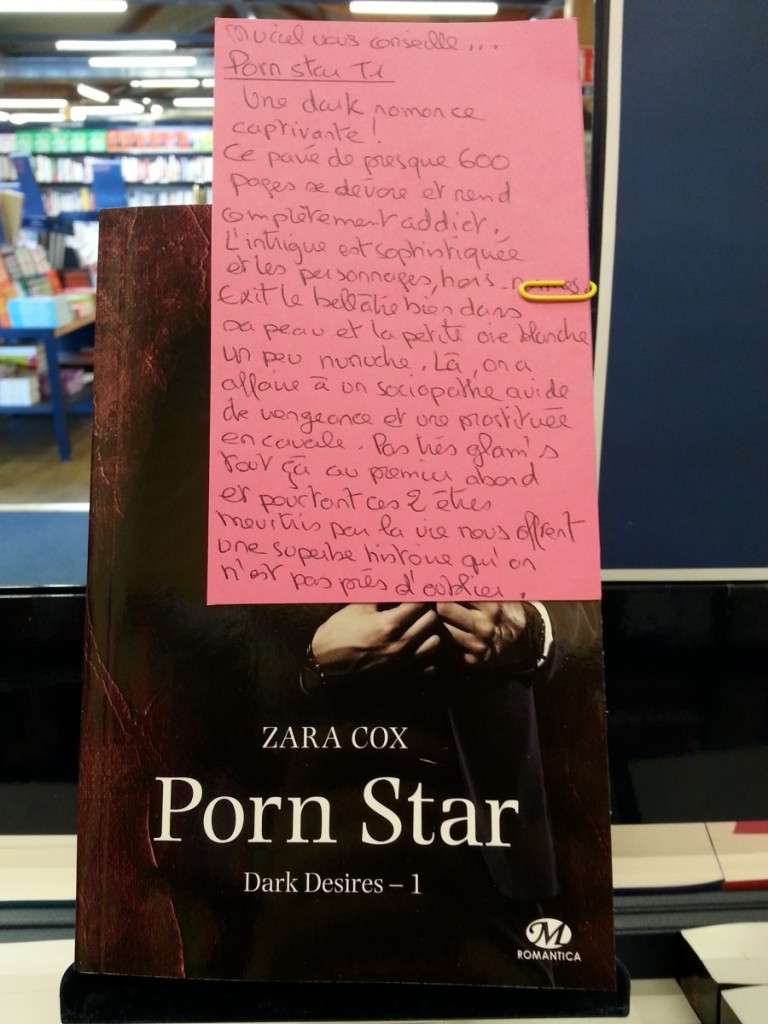 Muriel vous conseille...
Porn star T1
Une dark romance
captivante !
Ce pavé de presque 600
pages se dévore et rend
complètement addict.
L'intrigue est sophistiquée
et les personnages, hors-normes.
Exit le bellâtre bien dans
sa peau et la petite oie blanche
un peu nunuche. Là, on a
affaire à un sociopathe avide
de vengeance et une prostituée
en cavale. Pas très glam's
tout ça au premier abord
et pourtant ces 2 êtres
meurtris par la vie nous offrent
une superbe histoire qu'on
n'est pas près d'oublier.
ZARA COX
Porn Star
Dark Desires – 1
M
ROMANTICA